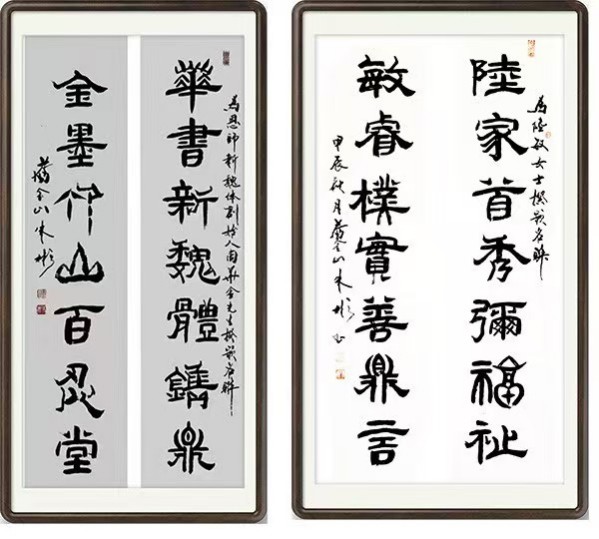 為恩師新魏体創始人周華金先生撰嵌名聯
華書新魏體鐫鼎
金墨仰山百忍堂
金山朱彬
為陸敏女士撰嵌名聯
陸家首秀彌福祉
敏睿樸實善鼎言
甲辰秋月金山朱彬書